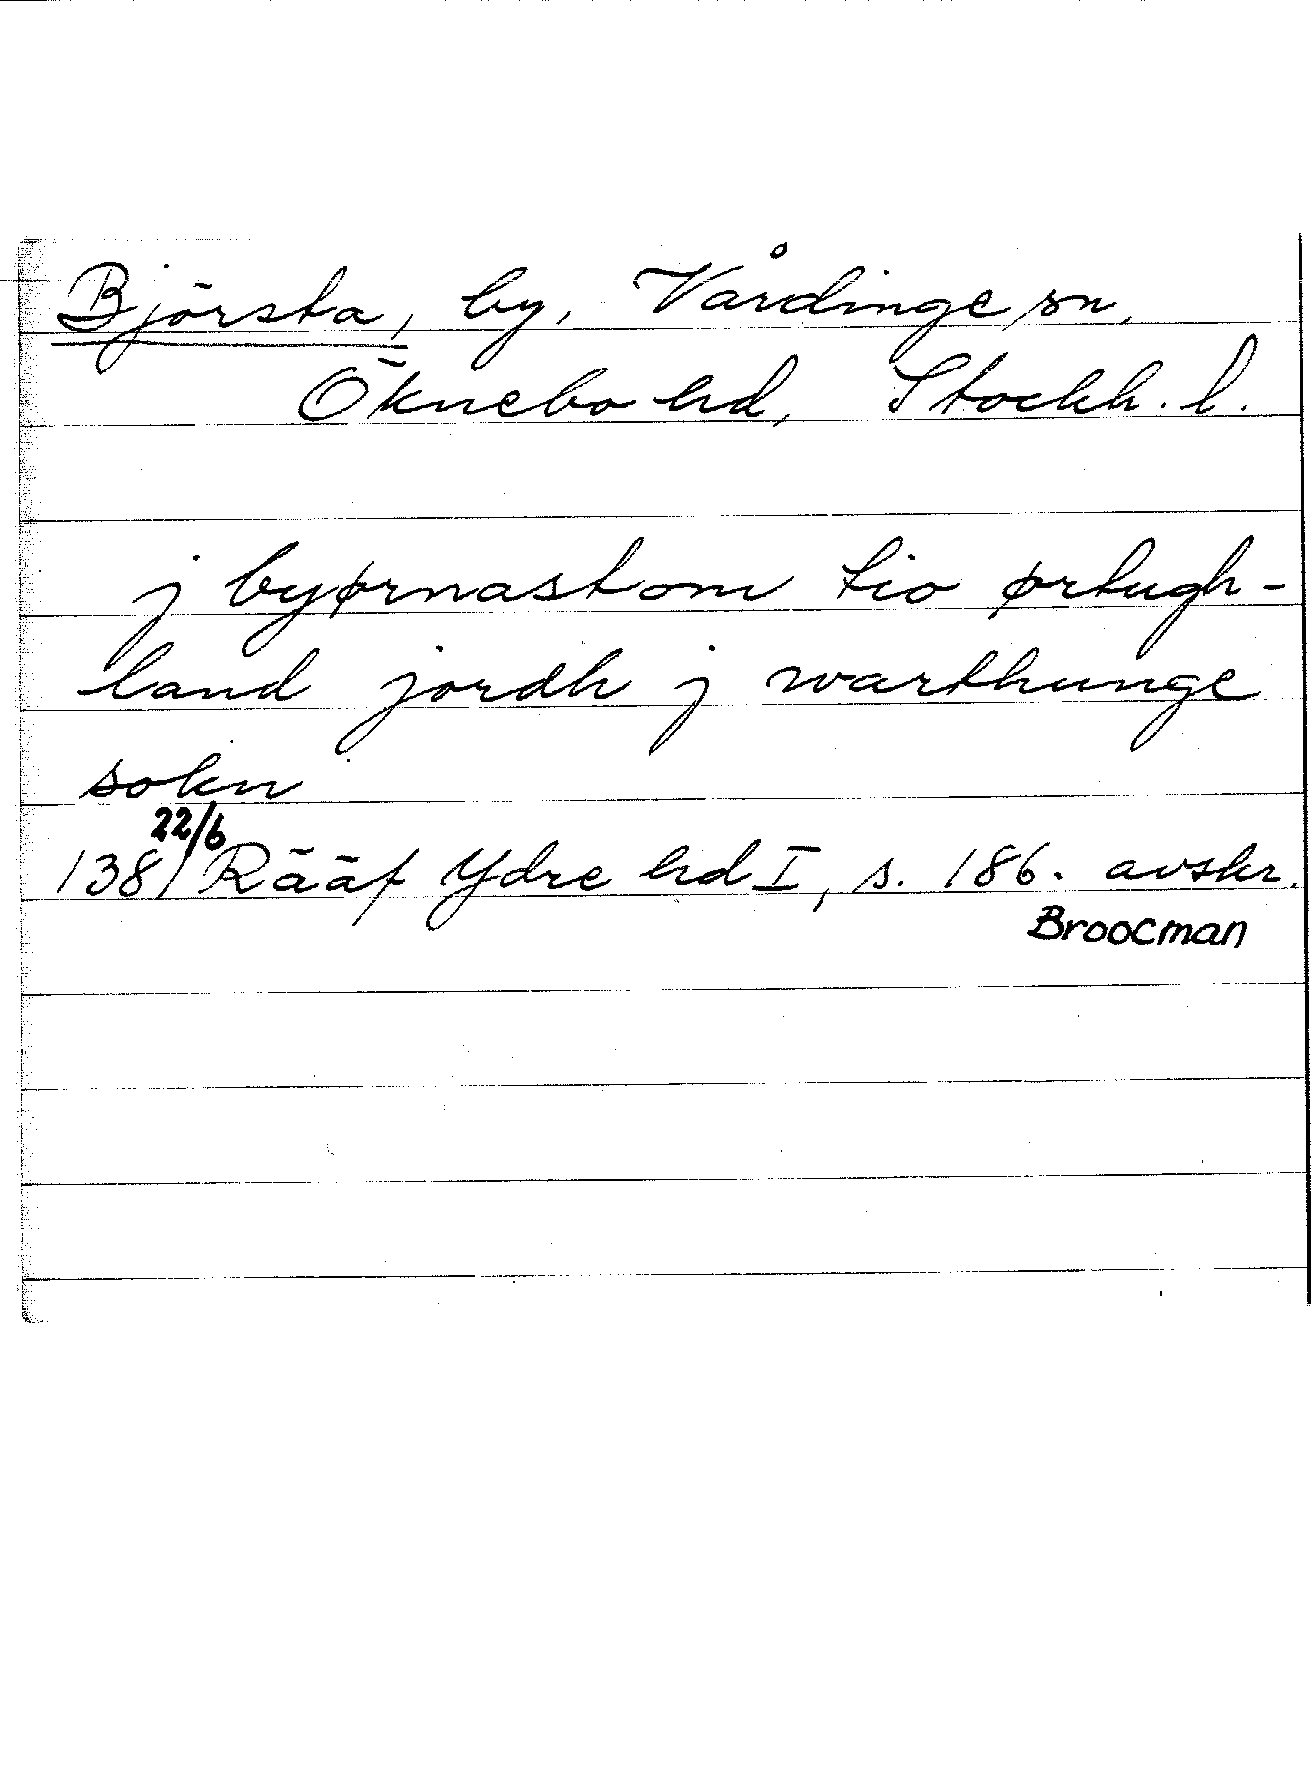 Björsta, by, Vårdinge sn,
Öknebo hd, Stockh. l.
j byørnastom tio ørtugh-
land jordh j warthunge
sokn
22/6
1381 Rääf Ydre hd I, s. 186. avskr.
Broocman